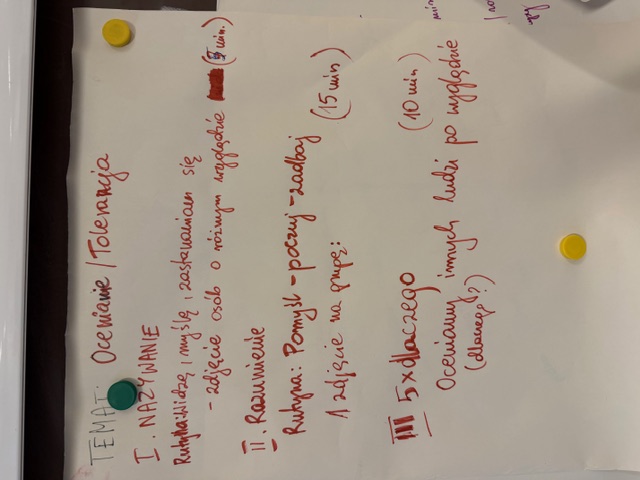 TEMAT: Ocenianie / Tolerancja
I. NAZYWANIE
Rutyka: Widzę, myślę, zastanawiam się
- zdjęcie osób o różnym wyglądzie (5 min.)
II. Rozumienie
Rutyna: Pomyśl - poczuj - zadbaj (15 min)
1 zdjęcie na grupę:
III 5 x dlaczego (10 min)
Oceniamy innych ludzi po wyglądzie
(dlaczego?)